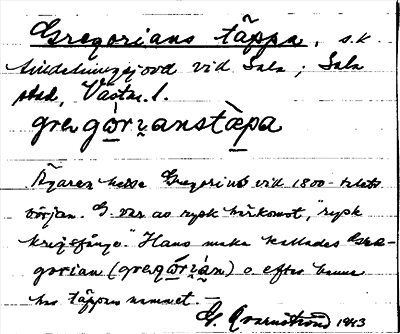 Gregorians täppa, s.k.
tindelningsjord vid Sala; Sala
stad, Västm. l.
gregò̱ri̯anstä̀pa
Ägaren hette Gregorius vid 1800-talets
början. G. var av rysk härkomst, "rysk
krigsfånge". Hans maka kallades Gre-
gorian (gregò̱ri̯án) o. efter henne
har täppan namnet.—
G. Qvarnström 1943